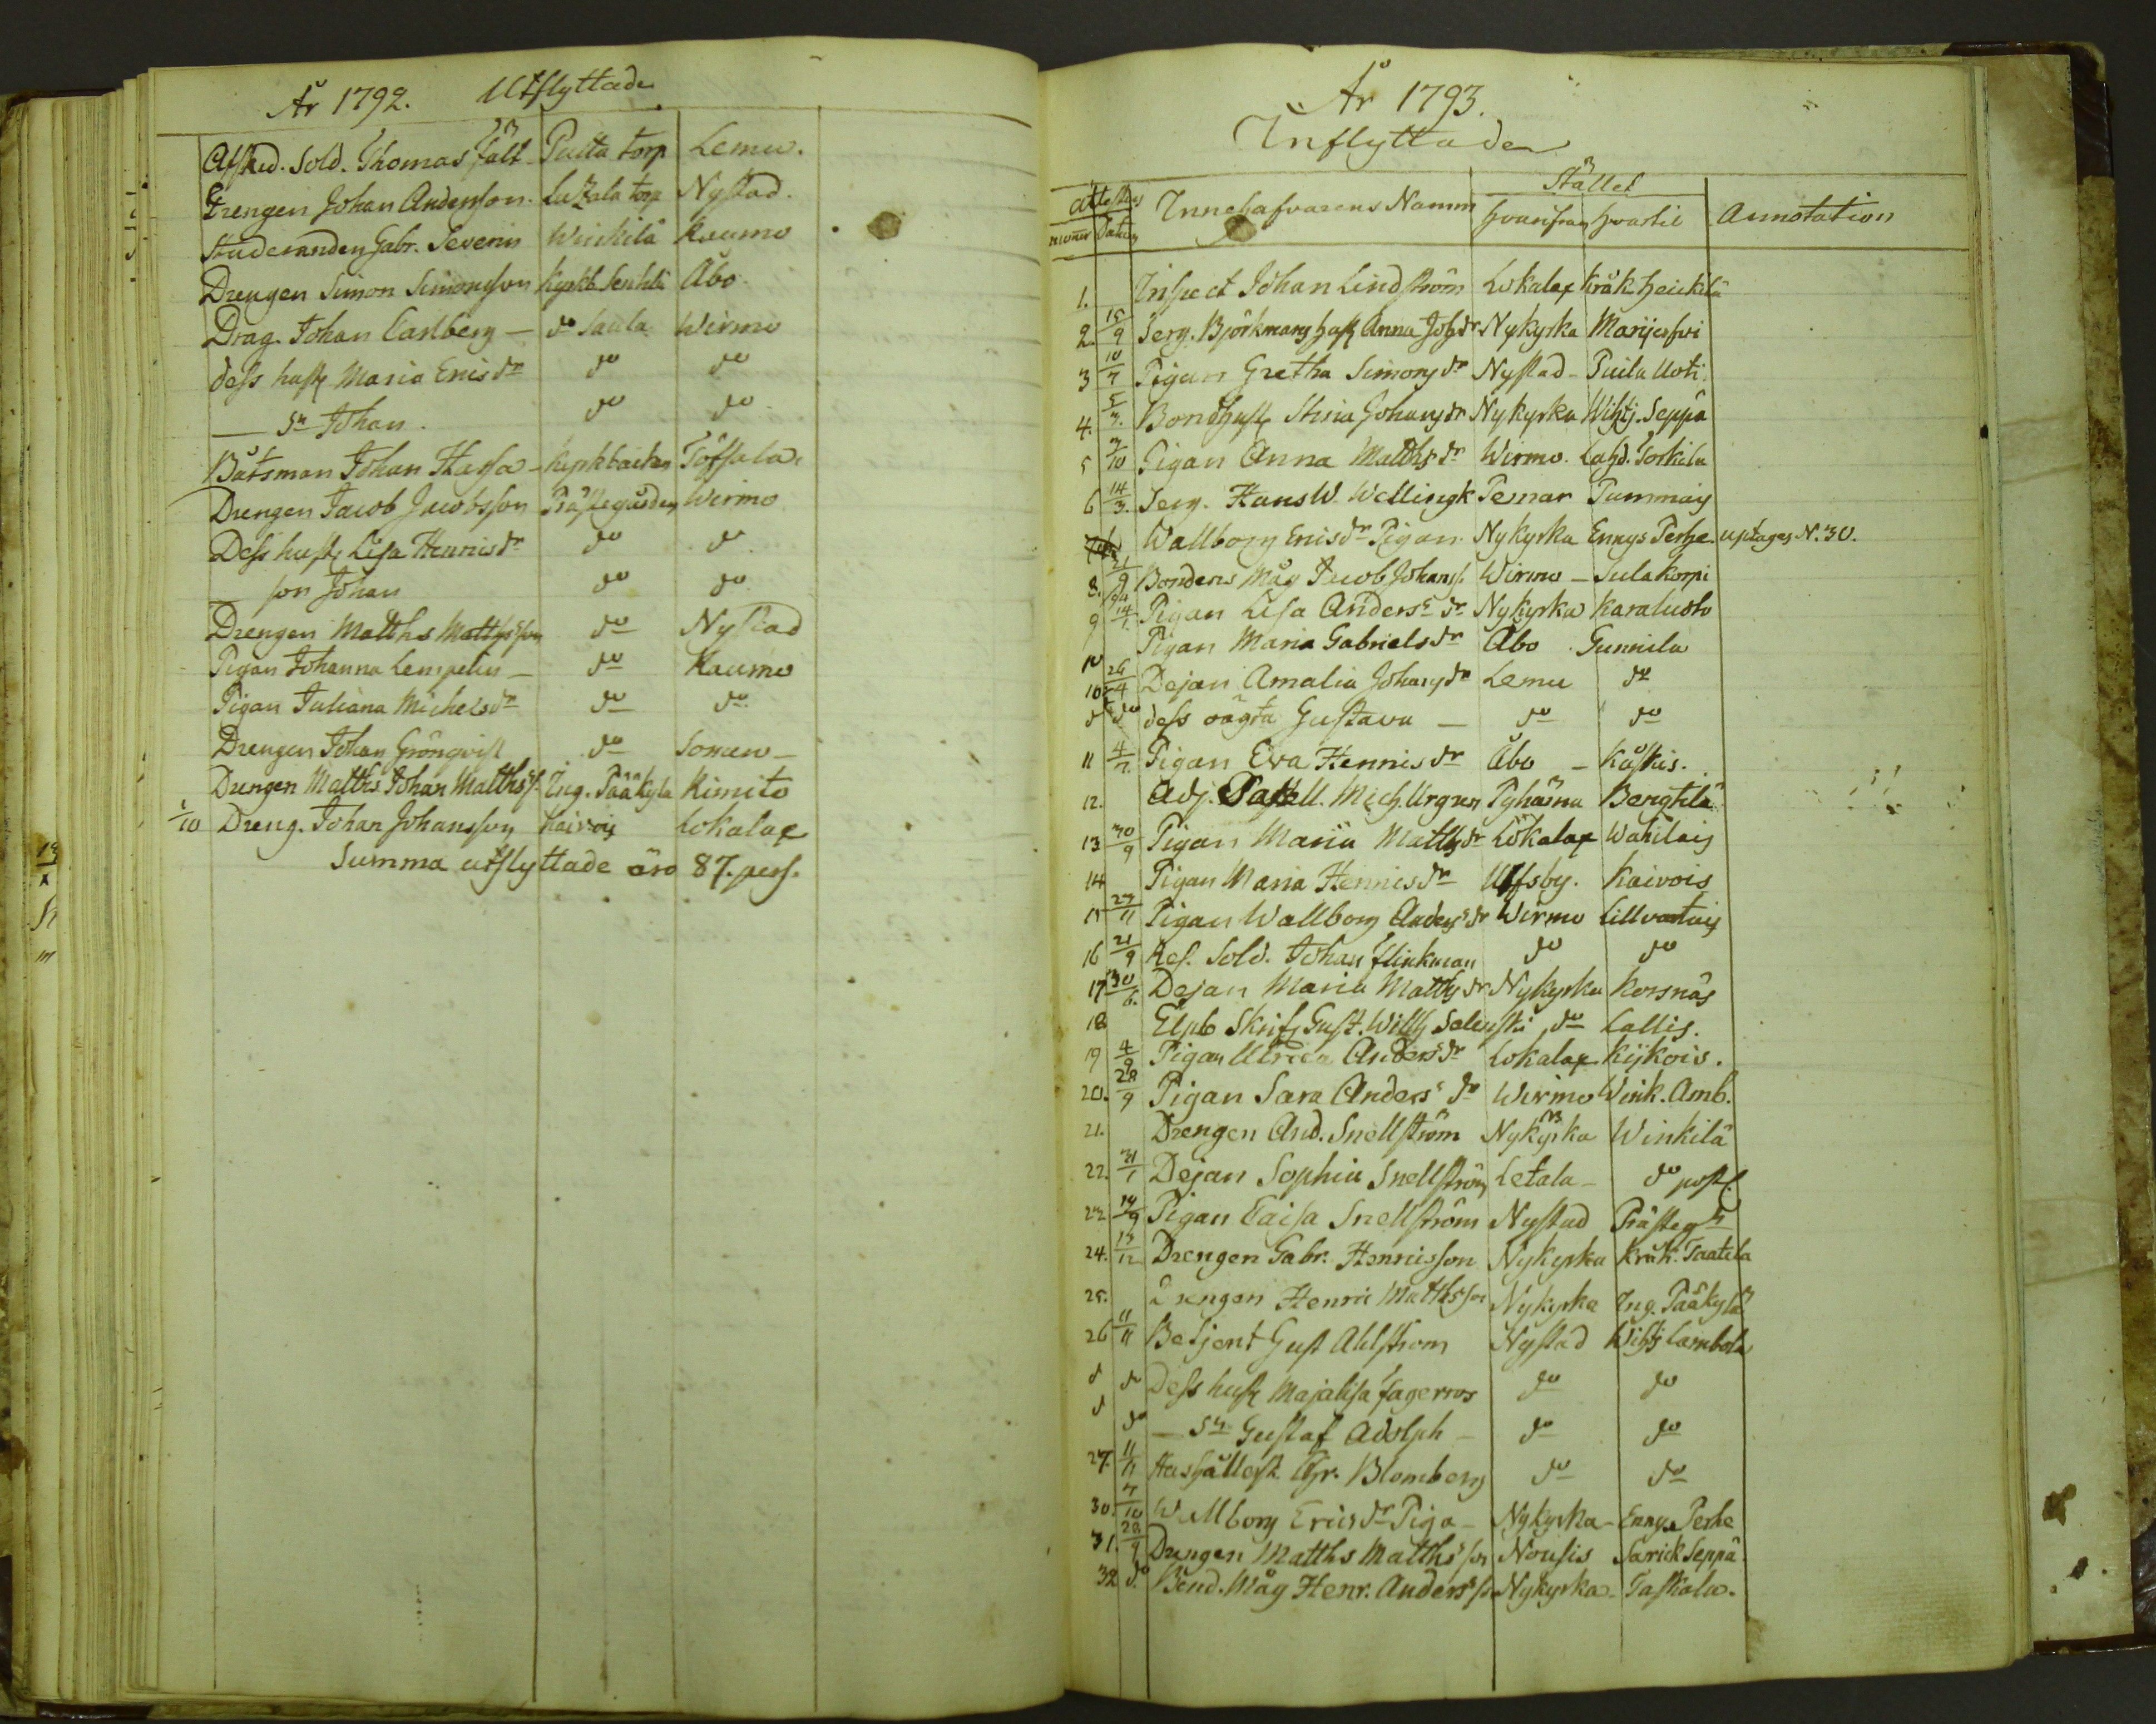 År 1792. Utflyttade
Afsked. Sold. Thomas Fält Puita torp Lemu.
Drengen Johan Andersson. Luzala torp Nystad.
Studeranden Gabr. Severin Winkilä Raumo
Drengen Simon Simonsson Kyrkb. Åbo
Drag. Johan Carlberg — do Saula Wirmo
dess hust Maria Ericsdr do do
— sn Johan. do do
Båtsman Johan Hassa — Kyrkbacken Töfsala.
Drengen Jacob Jacobsson Prästegården Wirmo
Dess hust Lisa Henricsdr do do
son Johan do do
Drengen Matths Mattsson do Nystad
Pigan Johanna Lempelin — do Raumo
Pigan Juliana Michelsdr do do
Drengen Johan Grönqvist do
Drengen Matths Johan Matths s. Ing. Pääkylä Kimito
1/10 Dreng. Johan Johansson Kaivois Lokalax
Summa utflyttade äro 87. pers.
År 1793.
Inflyttade
Attestens Innehafvarens Namn Stället
numer datum hvarifran hvartil Annotation
1. Inspect Johan Lindström Lokalax Kråk. Heickilä
2. 15/9 Serg. Björkmans hust Anna Johsdr Nykyrka
3 10/7 Pigan Gretha Simonsdr Nystad — Puila Uoti
4. 5/3. Bondhust Stina Johansdr Nykyrka Wihtj. Seppä
5 3/10 Pigan Anna Matthsdr Wirmo. Lahd. Torkila
6 14/3. Serg. Hans W. Wellingk Pemar Pummais
Wallborg Ericsdr Pigan. Nykyrka Ennys Perhe. uptages N. 30.
8. 21/9 Bondens Måg Jacob Johans s. Wirmo — Sulakorpi
9 14/1. Pigan Lisa Anders dr Nykyrka Karaluoto
10 Pigan Maria Gabrielsdr Åbo Gunnila
10 26/4 Dejan Amalia Johansdr Lemu do
d do dess oägta Gustava — do do
11 4/7. Pigan Eva Henricsdr Åbo — Kåskis.
12. Adj. Mich. Urgren Pyhäma Bengtilä
13 30/9 Pigan Maria Matthsdr Lokalax Wahilais
14 Pigan Maria Henricsdr Ulfsby. Kaivois
15 27/11 Pigan Wallborg Andersdr Wirmo Lillvartais
16 21/9 Res. Sold. Johan Flinkman do do
17 30/6. Dejan Maria Matthsdr Nykyrka Korsnäs
18. Skrif Gust. Wilh do Lallis.
19 4/9 Pigan Ulrica Andersdr Lokalax Kijkois.
20. 28/9 Pigan Sara Anders dr Wirmo Wink. Amb.
21. Drengen And. Snellström Nykyrka Winkilä
22. 31/1 Dejan Sophia Snellström Letala — do
23 14/9 Pigan Caisa Snellström Nystad Prästegn
24. 13/12 Drengen Gabr. Henricsson Nykyrka Kråk. Taatila
25. Drengen Henric Matthsson Nykyrka Ing. Pääkylä
26 11/11 Betjent Gust Ahlstrom Nystad Wihtj Lambola
d do Dess hust Majalisa Fagerros do do
d do — sn Gustaf Adolph — do do
27. 11/11 Hushållersk Chr. Blomberg do do
30. 7/10 Wallborg Ericsdr Piga — Nykyrka — Ennys Perhe
31. 28/9 Drengen Matths Matths son Nousis Sarick Seppä
32 do Bond. Måg Henr. Anders so Nykyrka — Taskala.